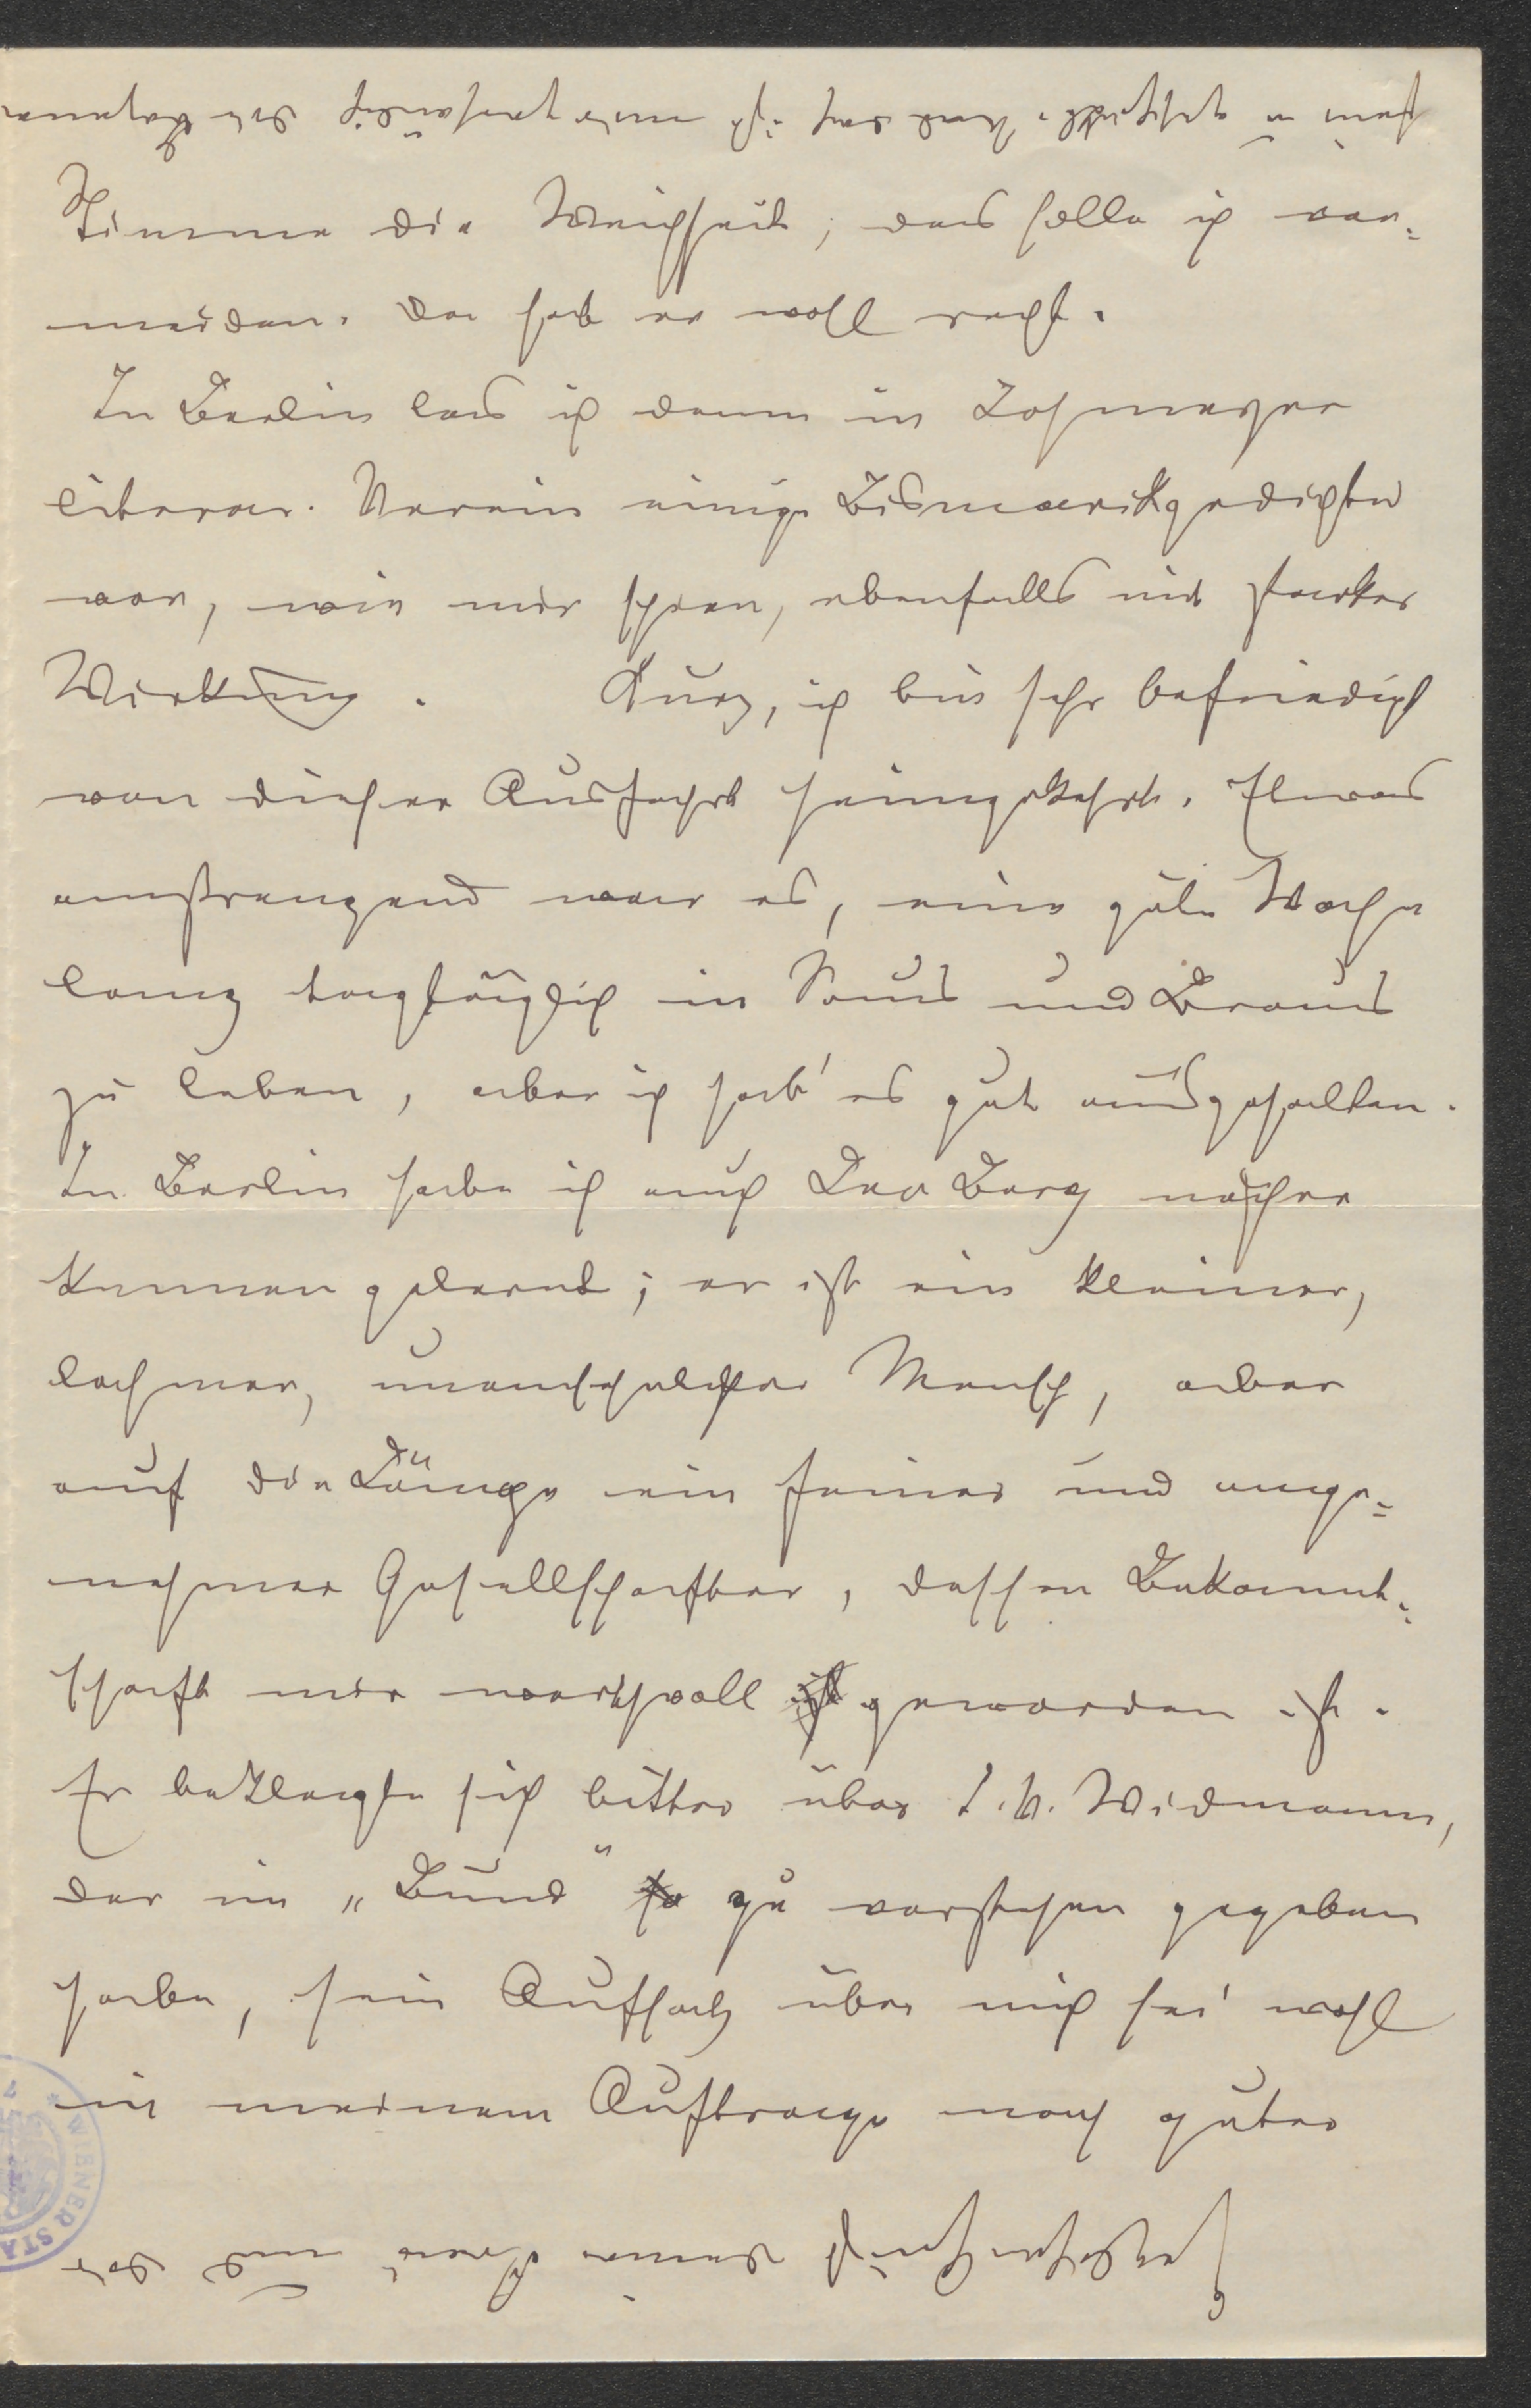 Stimme die Weichheit; das solle ich ver=
meiden. Da hat er wohl recht.
In Berlin las ich dann in Lohmeyer
literar. Verein einige Bismarckgedichte
vor, wie mir schien, ebenfalls mit starker
Wirkung. Kurz, ich bin sehr befriedigt
von dieser Ausfahrt heimgekehrt. Etwas
anstrengend war es, eine gute Woche
lang tagtäglich in Saus und Braus
zu leben, aber ich hab' es gut ausgehalten.
In Berlin habe ich auch Leo Berg näher
kennen gelernt; er ist ein kleiner,
lahmer, Mensch, aber
auf die Länge ein feiner und ange=
nehmer Gesellschafter, dessen Bekannt=
schaft mir wertvoll ist geworden ist.
Er beklagte sich bitter über J. V. Widmann,
der im „Bund" so zu verstehen gegeben
habe, sein Aufsatz über mich sei wohl
in meinem Auftrage nach guter
WIENER STA